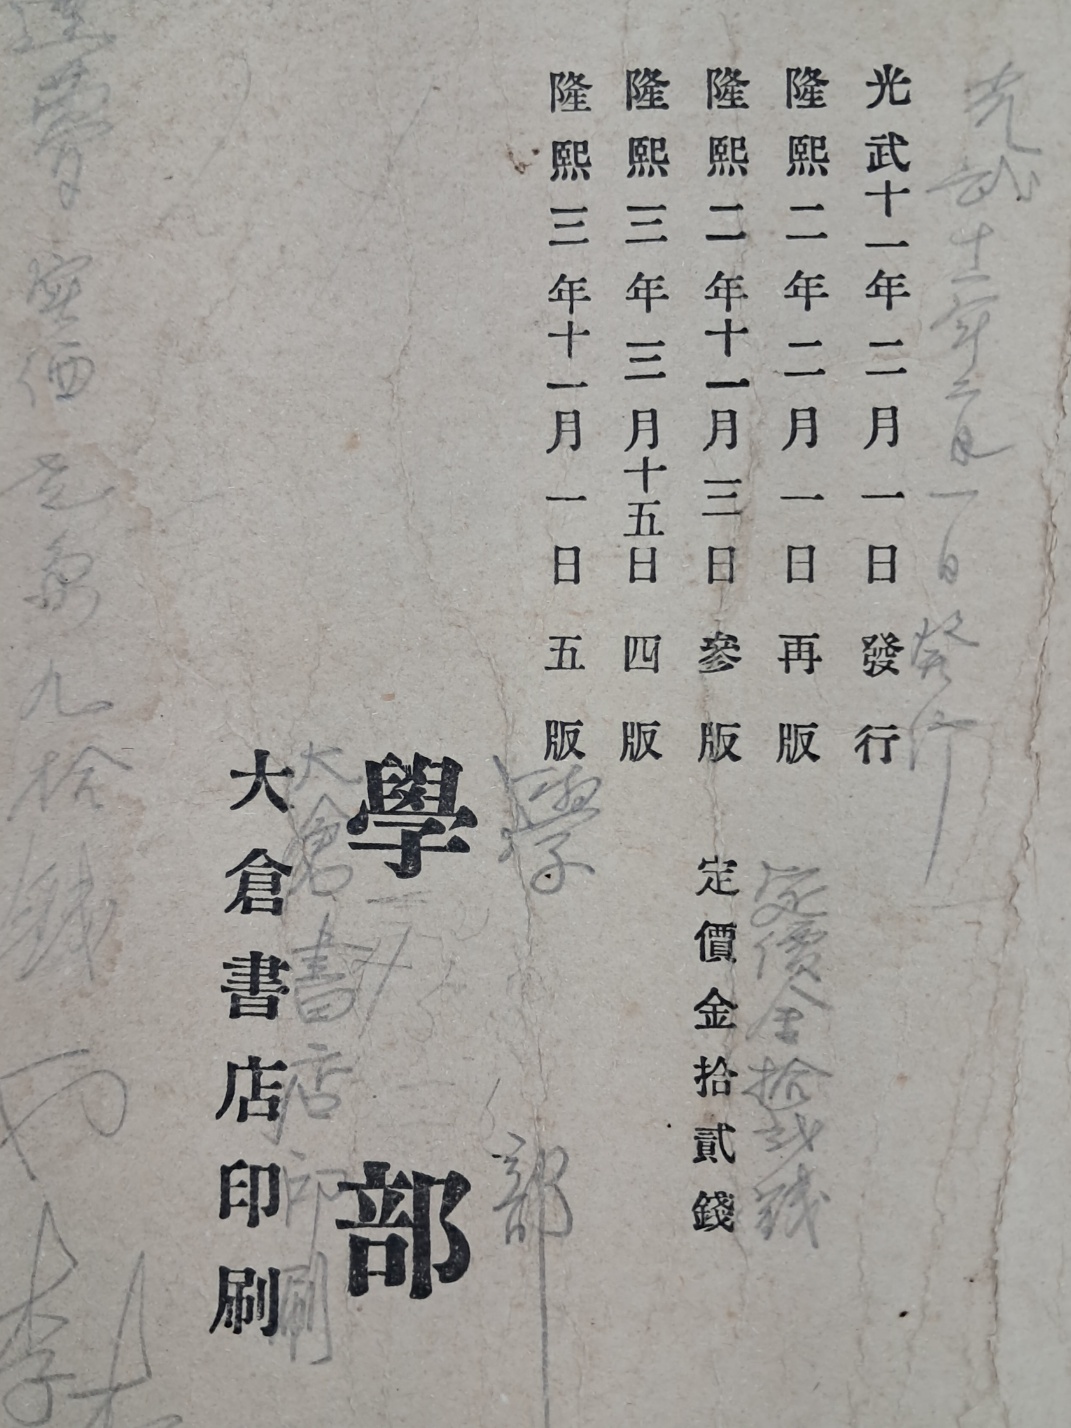 光武十二年二月一日發行
光武十一年二月一日發行
隆熙二年二月一日再版
定價金拾貳錢
隆熙二年十一月三日參版
定價金拾貳錢
隆熙三年三月十五日四版
隆熙三年十一月一日五版
學部
學部
大倉書店印刷
大倉書店印刷